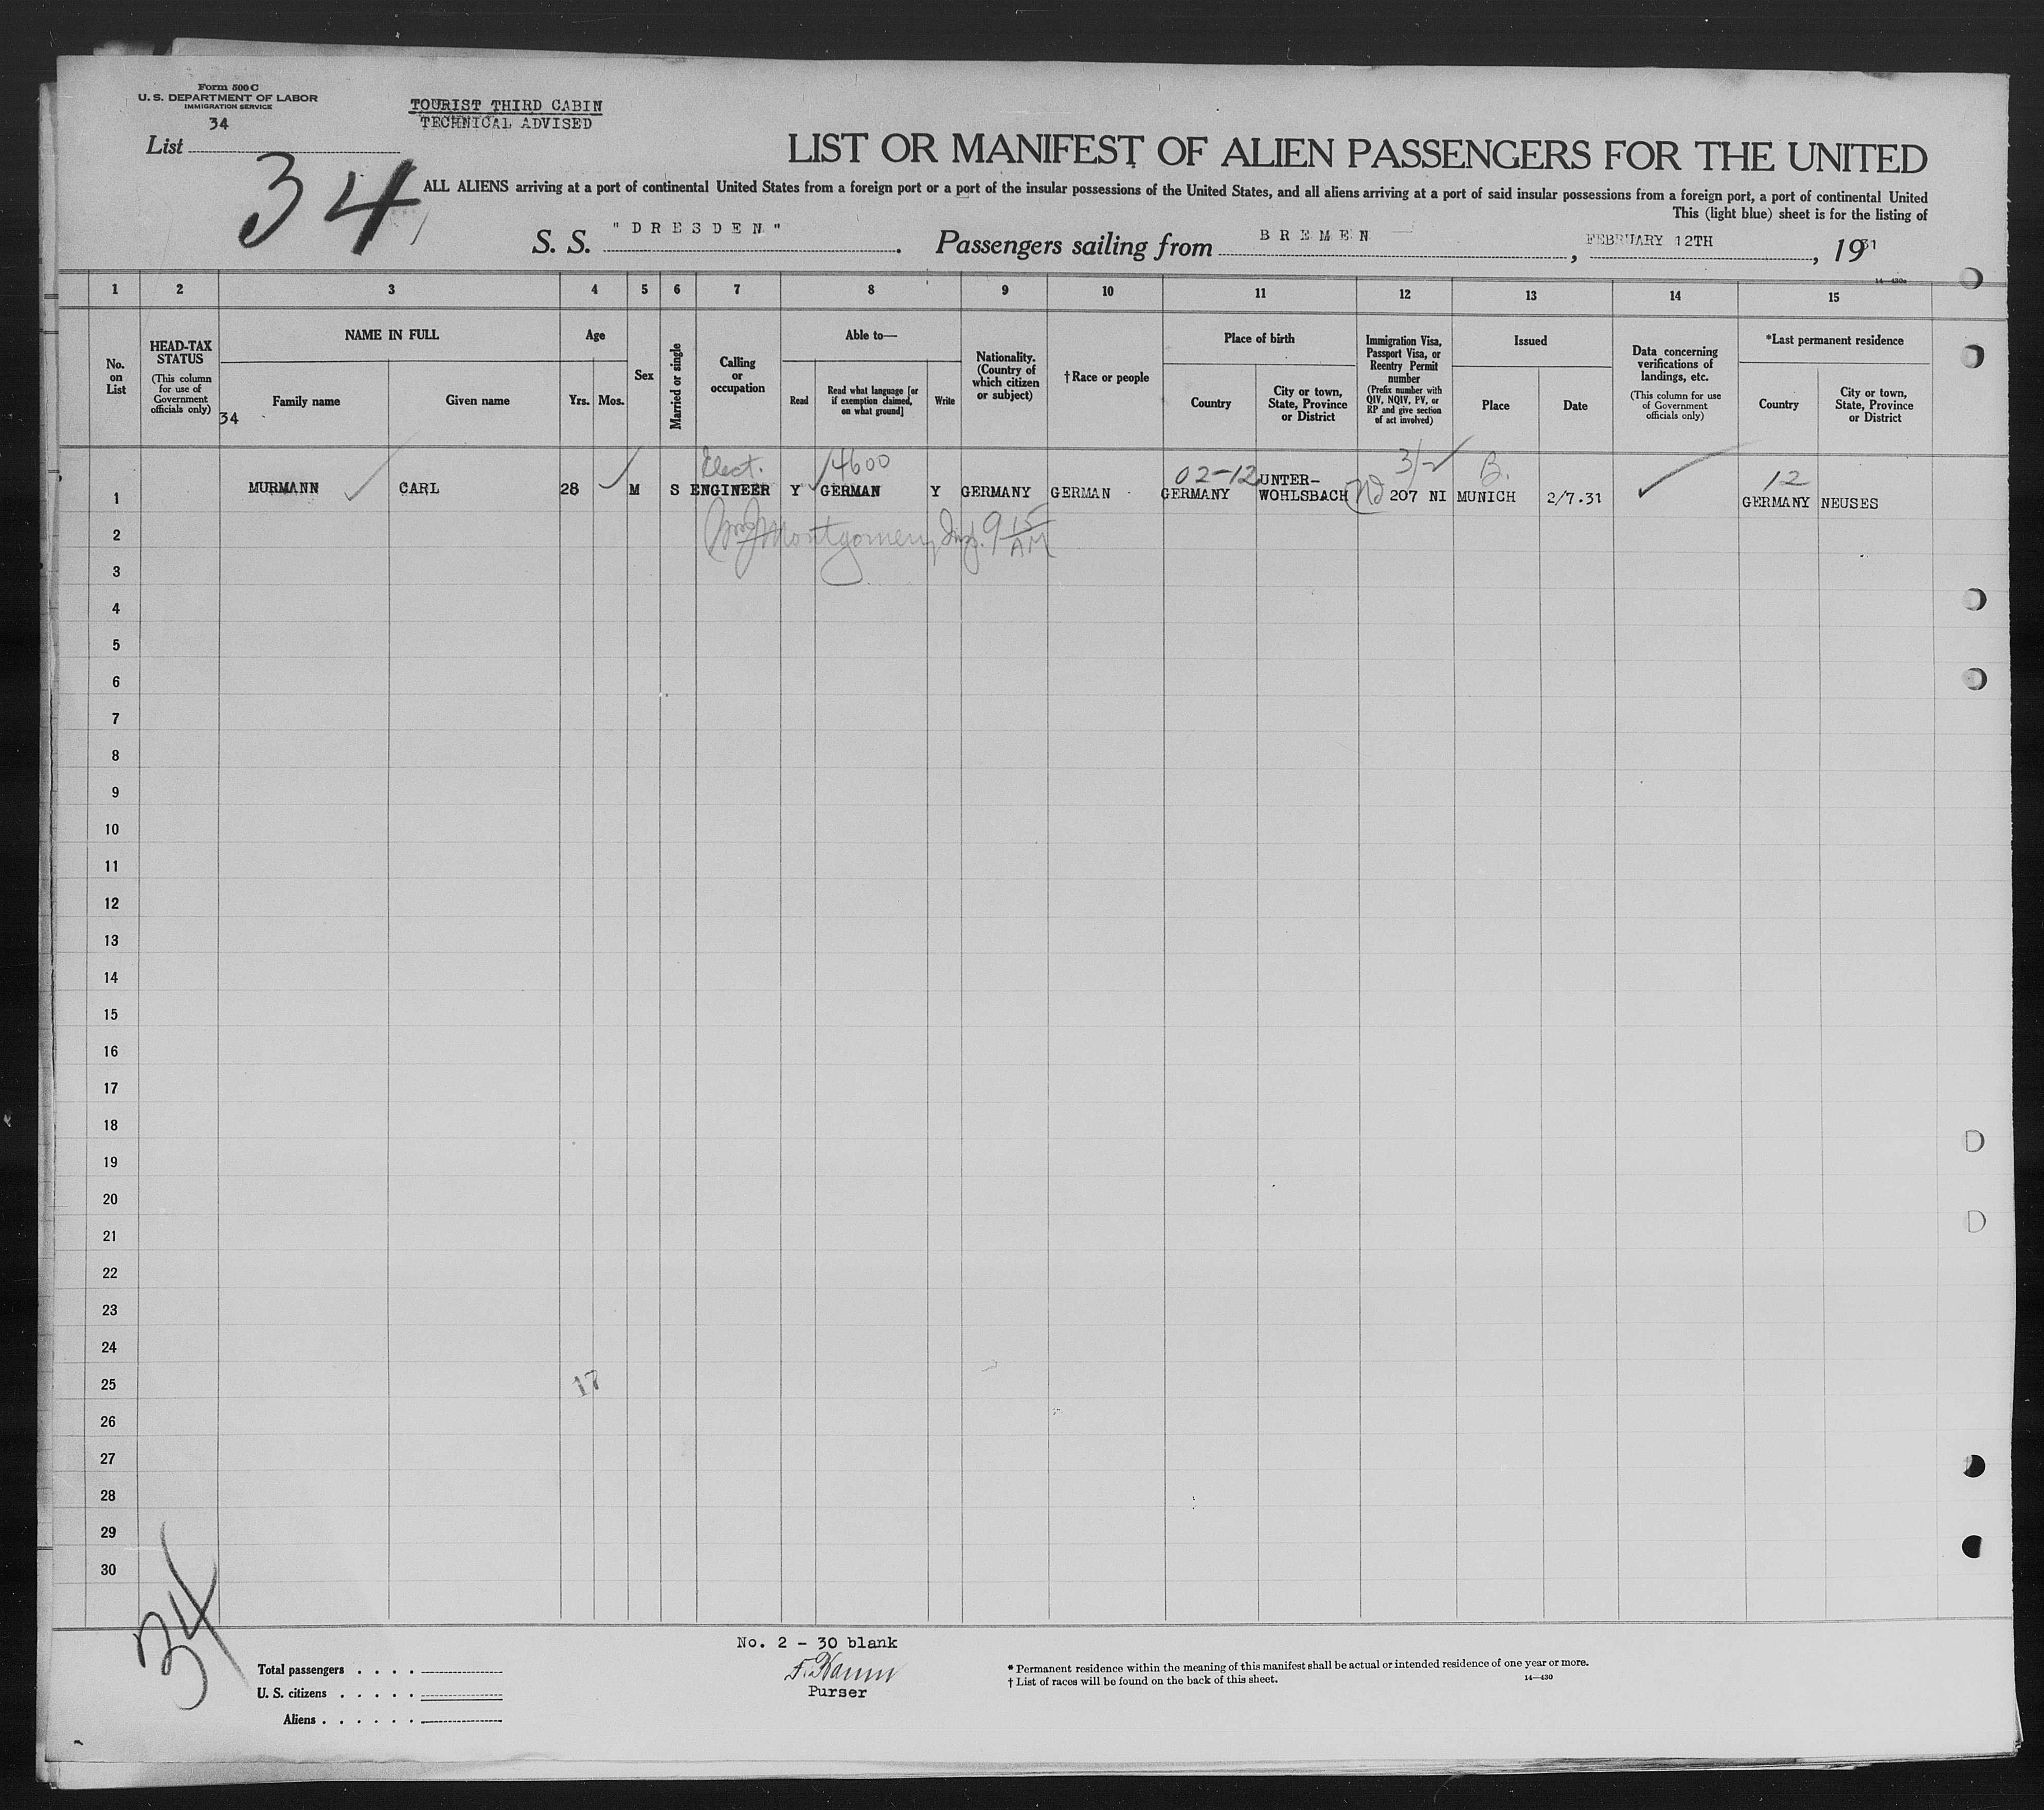 Form 500 C
U. S. DEPARTMENT OF LABOR
IMMIGRATION SERVICE
List 34
TOURIST THIRD CABIN
TECHNICAL ADVISED
34
LIST OR MANIFEST OF ALIEN PASSENGERS FOR THE UNITED
ALL ALIENS arriving at a port of continental United States from a foreign port or a port of the insular possessions of the United States, and all aliens arriving at a port of said insular possessions from a foreign port, a port of continental United
This (light blue) sheet is for the listing of
S. S. "DRESDEN". Passengers sailing from BREMEN, FEBRUARY 12TH, 1931
14—430a
1 2 3 4 5 6 7 8 9 10 11 12 13 14 15
No. on List
HEAD-TAX STATUS
(This column for use of Government officials only)
34
NAME IN FULL
Family name
Given name
Age
Yrs.
Mos.
Sex
Married or single
Calling or occupation
Able to—
Read
Read what language [or if exemption claimed, on what ground]
Write
Nationality. (Country of which citizen or subject)
†Race or people
Place of birth
Country
City or town, State, Province or District
Immigration Visa, Passport Visa, or Reentry Permit number
(Prefix number with QIV, NQIV, PV, or RP and give section of act involved)
Issued
Place
Date
Data concerning verifications of landings, etc.
(This column for use of Government officials only)
*Last permanent residence
Country
City or town, State, Province or District
Elect. 4600 02-12 3/2 B. 12
1 MURMANN CARL 28 M S ENGINEER Y GERMAN Y GERMANY GERMAN GERMANY UNTER-WOHLSBACH 207 NI MUNICH 2/7.31 GERMANY NEUSES
2 Montgomery Insp. 9 15 AM
3
4
5
6
7
8
9
10
11
12
13
14
15
16
17
18
19
20
21
22
23
24
25 17
26
27
28
29
30
34
No. 2 - 30 blank
Purser
Total passengers
U. S. citizens
Aliens
* Permanent residence within the meaning of this manifest shall be actual or intended residence of one year or more.
† List of races will be found on the back of this sheet.
14—430